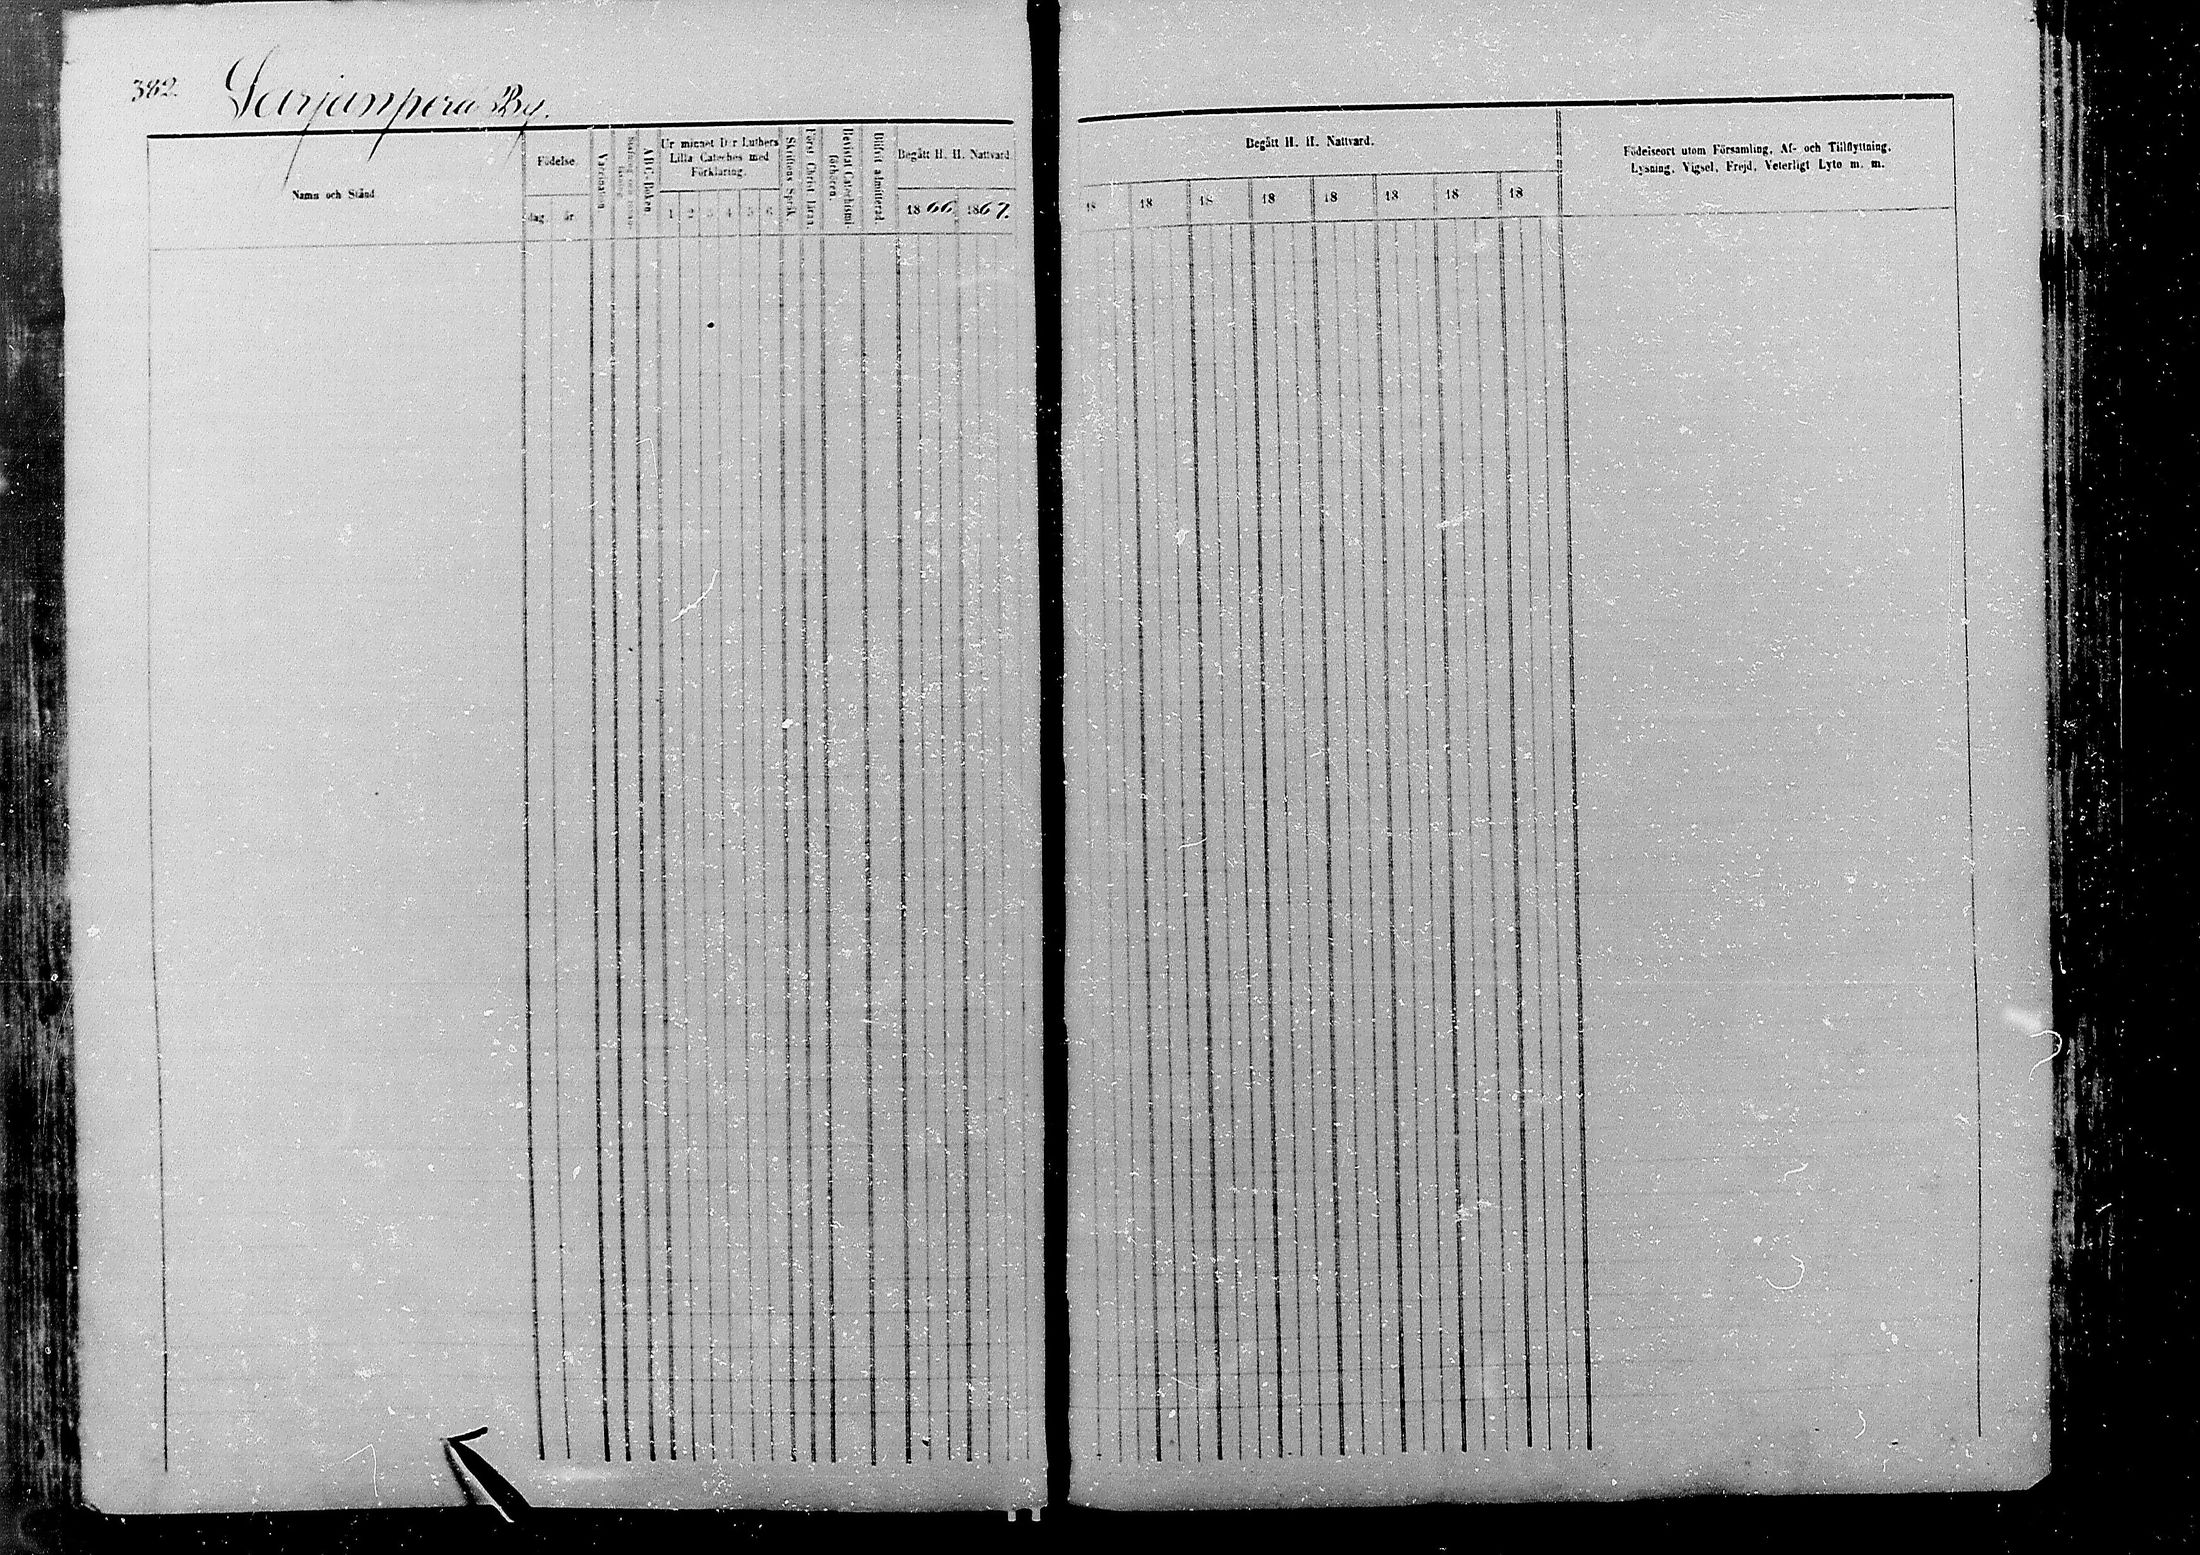 382. Sarjanperä By.
Namn och Stånd
Födelse.
dag. år.
Vaccination
ABC-Boken
Ur minnet D:r Luthers
Lilla Cateches med
Förklaring.
1 2 3 4 5 6
Skriftens Språk
Först. Christ. läran.
Bevistat Catechismi-
förhören.
Blifvit admitterad.
Begått H. H. Nattvard.
1866. 1867.
Begått H. H. Nattvard.
18 18 18 18 18 18 18 18
Födelseort utom Församling, Af- och Tillflyttning,
Lysning, Vigsel, Frejd, Veterligt Lyto m. m.